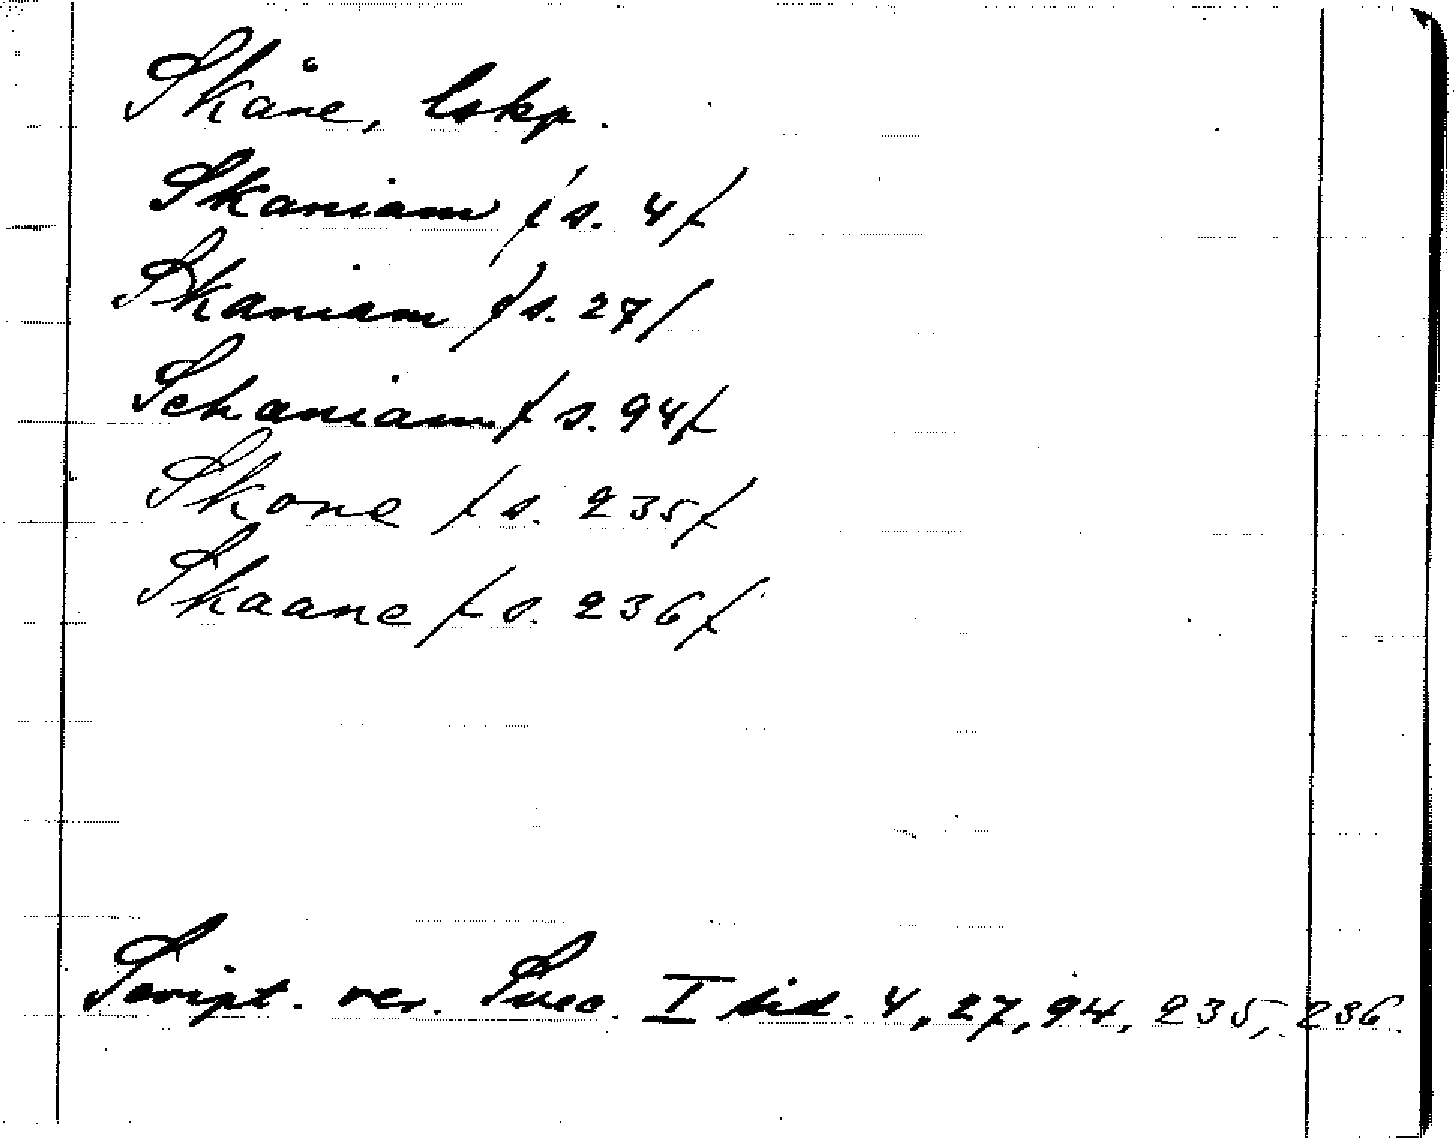 Skåne, lskp.
Skaniam /s. 4/
Skaniam /s. 27/
Schaniam /s. 94/
Skone /s. 235/
Skaane /s. 236/
Script. rer. Suec. I sid. 4, 27, 94, 235, 236.